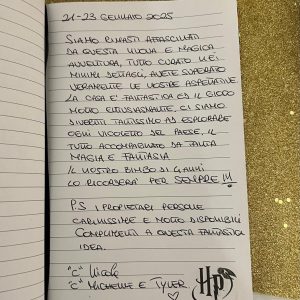 21-23 GENNAIO 2025
SIAMO RIMASTI AFFASCINATI
DA QUESTA NUOVA E MAGICA
AVVENTURA, TUTTO CURATO NEI
MINIMI DETTAGLI, AVETE SUPERATO
VERAMENTE LE NOSTRE ASPETTATIVE
LA CASA E' FANTASTICA ED IL GIOCO
MOLTO ENTUSIASMANTE, CI SIAMO
DIVERTITI TANTISSIMO AD ESPLORARE
OGNI VICOLETTO DEL PAESE, IL
TUTTO ACCOMPAGNATO DA TANTA
MAGIA E FANTASIA
IL NOSTRO BIMBO DI 4 ANNI
LO RICORDERA' PER SEMPRE!!!
PS I PROPRIETARI PERSONE
CARINISSIME E MOLTO DISPONIBILI
COMPLIMENTI A QUESTA FANTASTICA
IDEA.
"C" Nicole
"C" MICHELLE E TYLER
HP